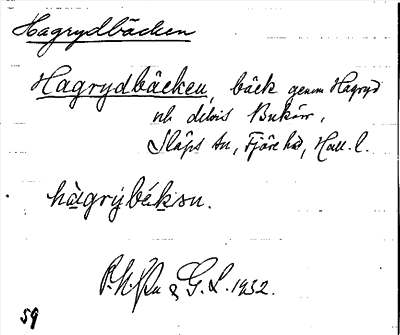 Hagrydbäcken
Hagrydbäcken, bäck genom Hagryd
och delvis Bukärr,
Släps sn, Fjäre hd, Hall. l.
hàgrýbékən.
& G. L. 1932.
59